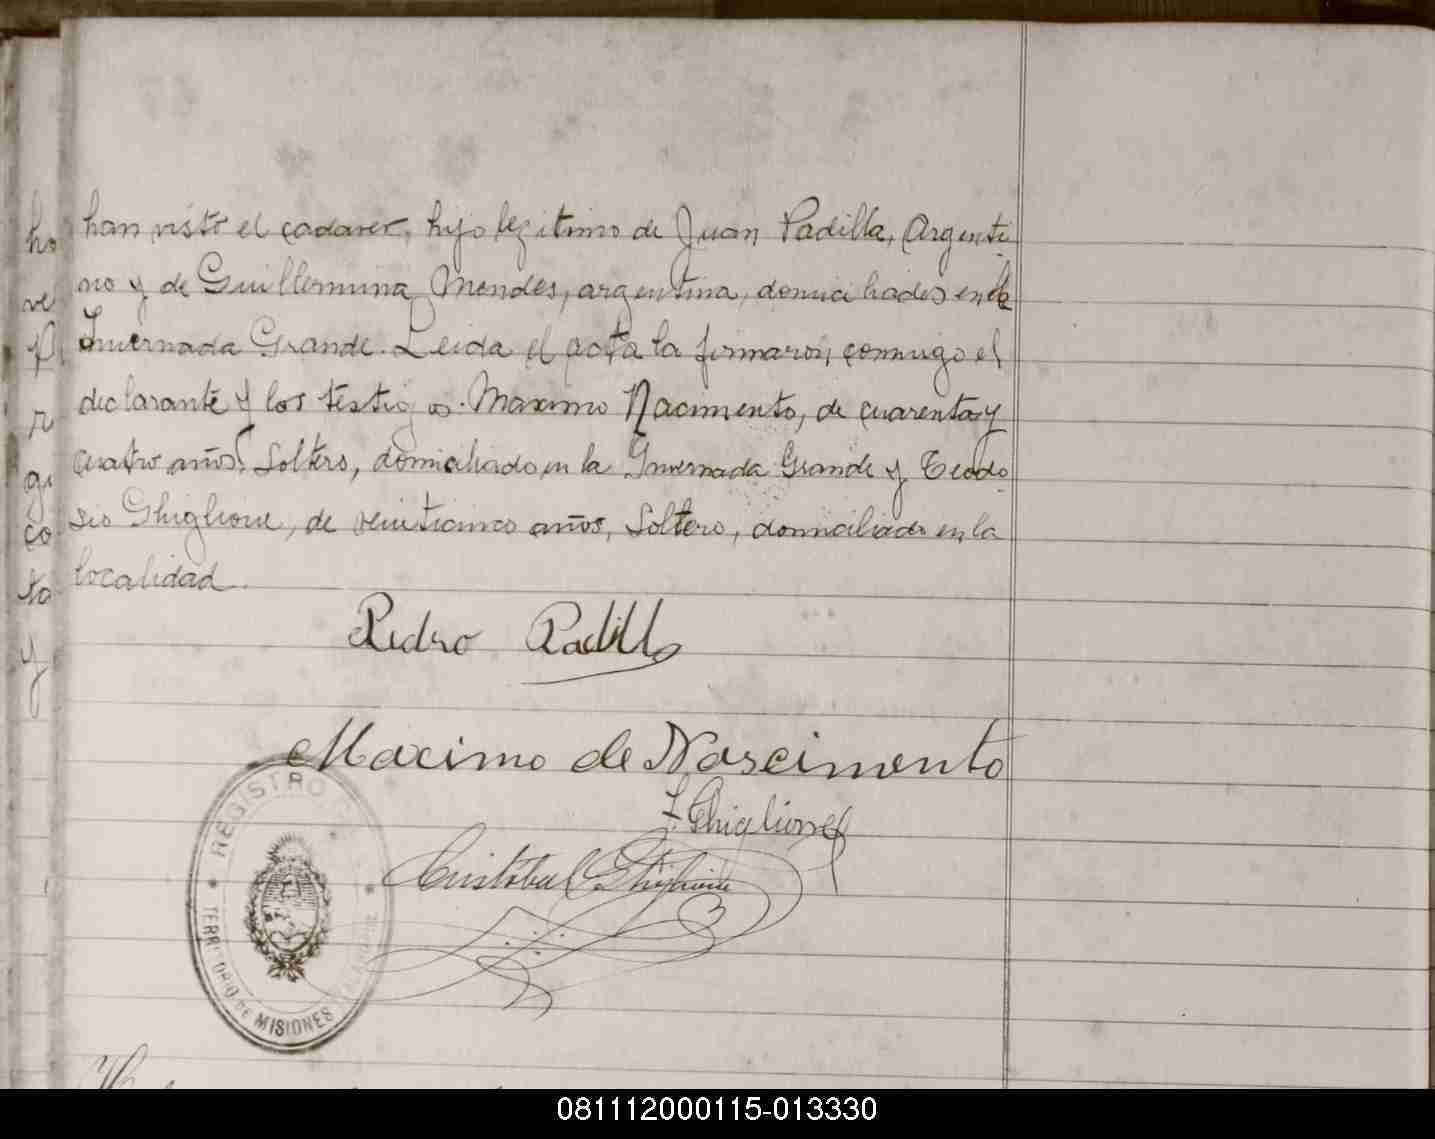 han visto el cadaver, hijo legitimo de Juan Padilla, Argenti
no y de Guillermina Mendes, argentina, domiciliados en la
Invernada Grande. Leida el acta la firmaron, conmigo el
declarante y los testigos. Maximo Nacimento, de cuarenta y
cuatro años, Soltero, domiciliado en la Invernada Grande y Teodo
sio Ghiglione, de veinticinco años, Soltero, domiciliado en la
localidad.
Pedro Padilla
Maximo de Nascimento
T. Ghiglione
Cristobal Ghiglione
REGISTRO
TERRITORIO DE MISIONES
ho
ve
p
r
gi
co
ta
y
081112000115-013330